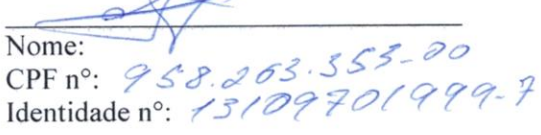 Nome:
CPF n°: 958.263.353-00
Identidade n°: 13109701999-7